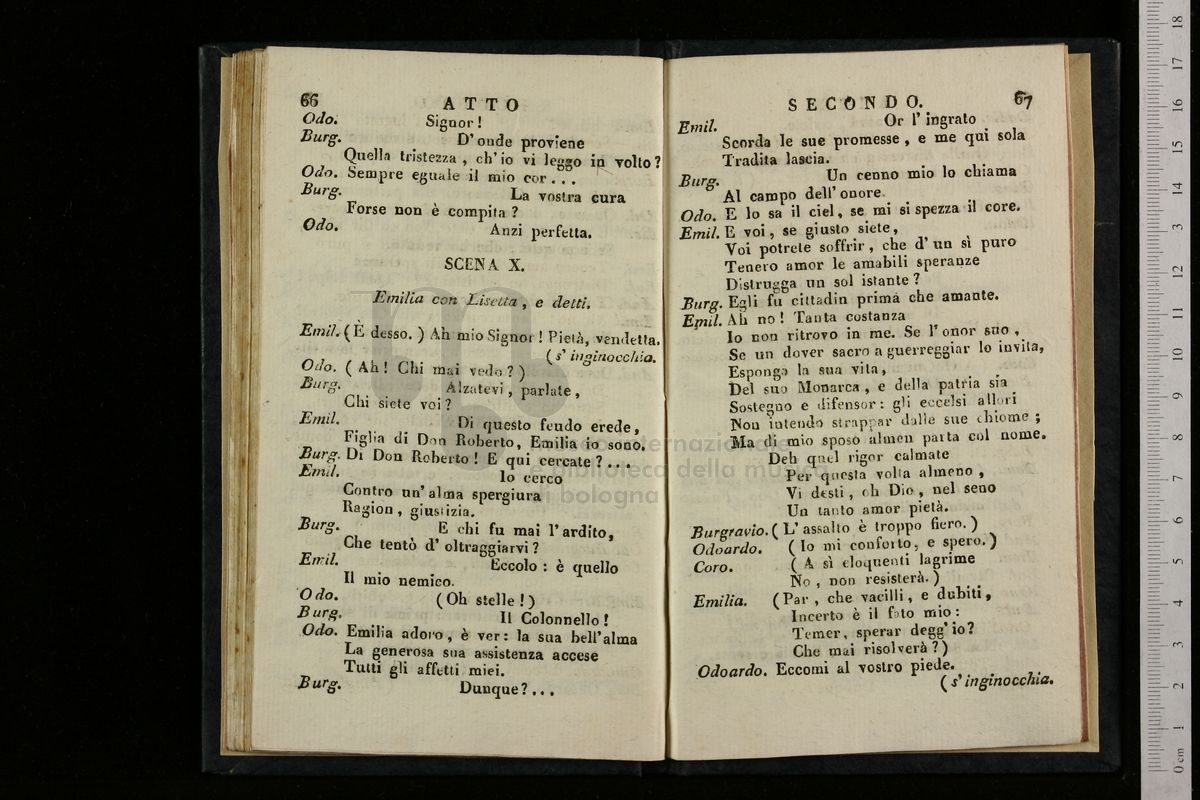 66 ATTO
Odo. Signor!
Burg. D'onde proviene
Quella tristezza, ch'io vi leggo in volto?
Odo. Sempre eguale il mio cor...
Burg. La vostra cura
Forse non è compita?
Odo. Anzi perfetta.
SCENA X.
Emilia con Lisetta, e detti.
Emil. (È desso.) Ah mio Signor! Pietà, vendetta.
(s'inginocchia.
Odo. (Ah! Chi mai vedo?)
Burg. Alzatevi, parlate,
Chi siete voi?
Emil. Di questo feudo erede,
Figlia di Don Roberto, Emilia io sono.
Burg. Di Don Roberto! E qui cercate?...
Emil. Io cerco
Contro un'alma spergiura
Ragion, giustizia.
Burg. E chi fu mai l'ardito,
Che tentò d'oltraggiarvi?
Emil. Eccolo: è quello
Il mio nemico.
Odo. (Oh stelle!)
Burg. Il Colonnello!
Odo. Emilia adoro, è ver: la sua bell'alma
La generosa sua assistenza accese
Tutti gli affetti miei.
Burg. Dunque?...
SECONDO. 67
Emil. Or l'ingrato
Scorda le sue promesse, e me qui sola
Tradita lascia.
Burg. Un cenno mio lo chiama
Al campo dell'onore.
Odo. E lo sa il ciel, se mi si spezza il core.
Emil. E voi, se giusto siete,
Voi potrete soffrir, che d'un sì puro
Tenero amor le amabili speranze
Distrugga un sol istante?
Burg. Egli fu cittadin prima che amante.
Emil. Ah no! Tanta costanza
Io non ritrovo in me. Se l'onor suo,
Se un dover sacro a guerreggiar lo invita,
Esponga la sua vita,
Del suo Monarca, e della patria sia
Sostegno e difensor: gli eccelsi allori
Non intendo strappar dalle sue chiome;
Ma di mio sposo almen parta col nome.
Deh quel rigor calmate
Per questa volta almeno,
Vi desti, oh Dio, nel seno
Un tanto amor pietà.
Burgravio. (L'assalto è troppo fiero.)
Odoardo. (Io mi conforto, e spero.)
Coro. (A sì eloquenti lagrime
No, non resisterà.)
Emilia. (Par, che vacilli, e dubiti,
Incerto è il fato mio:
Temer, sperar degg'io?
Che mai risolverà?)
Odoardo. Eccomi al vostro piede.
(s'inginocchia.
museo internazionale
e biblioteca della musica
di bologna
0 cm 1 2 3 4 5 6 7 8 9 10 11 12 13 14 15 16 17 18